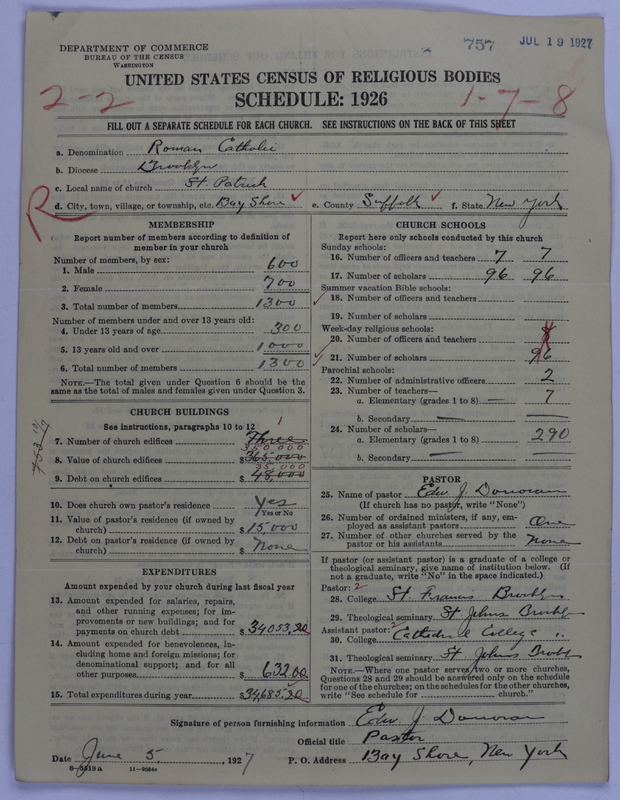 757 JUL 19 1927
DEPARTMENT OF COMMERCE
BUREAU OF THE CENSUS
WASHINGTON
UNITED STATES CENSUS OF RELIGIOUS BODIES
2-2 SCHEDULE: 1926 1-7-8
FILL OUT A SEPARATE SCHEDULE FOR EACH CHURCH. SEE INSTRUCTIONS ON THE BACK OF THIS SHEET
a. Denomination Roman Catholic
b. Diocese Brooklyn
c. Local name of church St. Patrick
R d. City, town, village, or township, etc. Bay Shore ✓ e. County Suffolk ✓ f. State New York
MEMBERSHIP
Report number of members according to definition of
member in your church
Number of members, by sex:
1. Male 600
2. Female 700
3. Total number of members 1300
Number of members under and over 13 years old:
4. Under 13 years of age 300
5. 13 years old and over 1000
6. Total number of members 1300
NOTE.—The total given under Question 6 should be the
same as the total of males and females given under Question 3.
CHURCH BUILDINGS
See instructions, paragraphs 10 to 12
1
7. Number of church edifices Three
350,000
8. Value of church edifices $365,000
35,000
9. Debt on church edifices $48,000
10. Does church own pastor's residence Yes
Yes or No
11. Value of pastor's residence (if owned by
church) $15,000
12. Debt on pastor's residence (if owned by
church) $None
EXPENDITURES
Amount expended by your church during last fiscal year
13. Amount expended for salaries, repairs,
and other running expenses; for im-
provements or new buildings; and for
payments on church debt $34053.20
14. Amount expended for benevolences, in-
cluding home and foreign missions; for
denominational support; and for all
other purposes $632.00
15. Total expenditures during year $34,685.20
CHURCH SCHOOLS
Report here only schools conducted by this church
Sunday schools:
16. Number of officers and teachers 7 7
17. Number of scholars 96 96
Summer vacation Bible schools:
18. Number of officers and teachers
19. Number of scholars
Week-day religious schools:
20. Number of officers and teachers
21. Number of scholars 96
Parochial schools:
22. Number of administrative officers 2
23. Number of teachers—
a. Elementary (grades 1 to 8) 7
b. Secondary
24. Number of scholars—
a. Elementary (grades 1 to 8) 290
b. Secondary
PASTOR
25. Name of pastor Edw. J. Donovan
(If church has no pastor, write "None")
26. Number of ordained ministers, if any, em-
ployed as assistant pastors One
27. Number of other churches served by the
pastor or his assistants None
If pastor (or assistant pastor) is a graduate of a college or
theological seminary, give name of institution below. (If
not a graduate, write "No" in the space indicated.)
Pastor: 2
28. College St Francis Brooklyn
29. Theological seminary St Johns Brookl
Assistant pastor: 2
30. College Cathedral College "
31. Theological seminary St Johns Brookl
NOTE.—Where one pastor serves two or more churches,
Questions 28 and 29 should be answered only on the schedule
for one of the churches; on the schedules for the other churches,
write "See schedule for church."
Signature of person furnishing information Edw J. Donovan
Official title Pastor
Date June 5, 1927 P. O. Address Bay Shore, New York
8-5318a 11-9054a